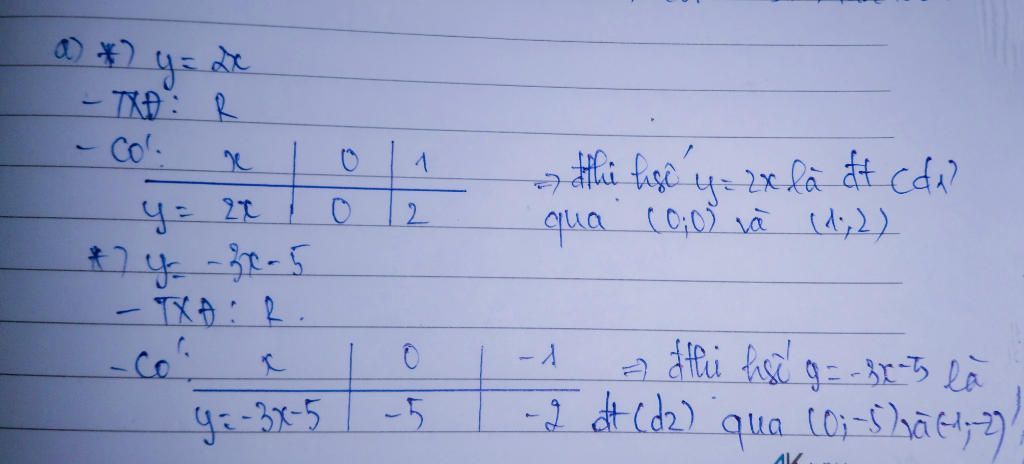 a) *) y = 2x
- TXĐ: R
- Có: x 0 1
y = 2x 0 2
=> đthị hsố y = 2x là đt (d1)
qua (0;0) và (1;2)
*) y = -3x - 5
- TXĐ: R.
- Có: x 0 -1
y = -3x - 5 -5 -2
=> đthị hsố y = -3x - 5 là
đt (d2) qua (0; -5) và (-1; -2)